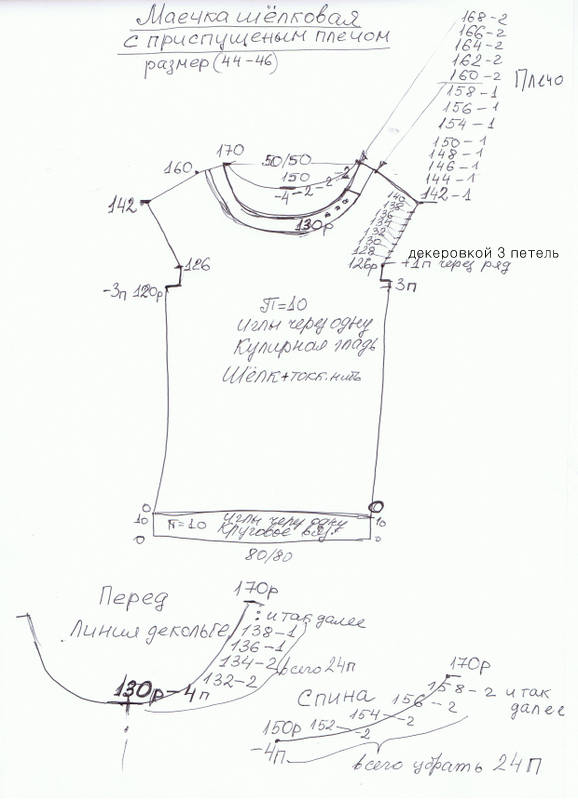 Маечка шёлковая
с приспущеным плечом
размер (44-46)
168-2
166-2
164-2
162-2
160-2
Плечо
158-1
156-1
154-1
150-1
148-1
146-1
144-1
142-1
170
50/50
160
150
-4-2-2-2
142
130р
140
138
136
134
132
130
128
декеровкой 3 петель
126
126р
+1п через ряд
-3п 120р
-3п
П=10
иглы через одну
Кулирная гладь
Шёлк+токк.нить
0
0
10
П=10
иглы через одну
Круговое вяз.
10
0
0
80/80
Перед
170р
Линия декольте
и так далее
138-1
136-1
134-2
всего 24п
132-2
130р-4п
170р
Спина
158-2
и так
далее
156-2
154-2
152-2
150р
-4п
всего убрать 24п